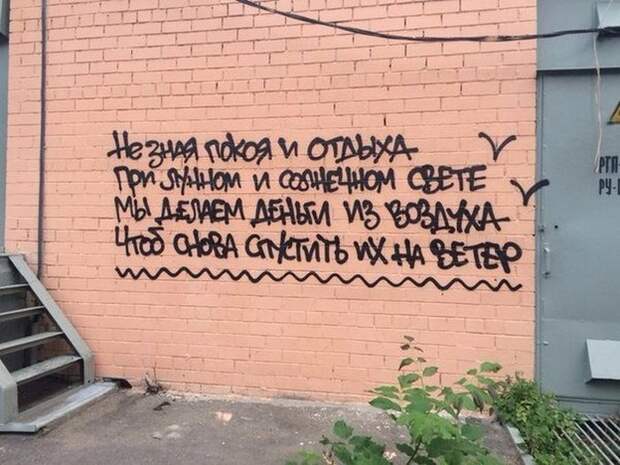 Не зная покоя и отдыха
при лунном и солнечном свете
мы делаем деньги из воздуха
чтоб снова спустить их на ветер
РТП-
РУ-